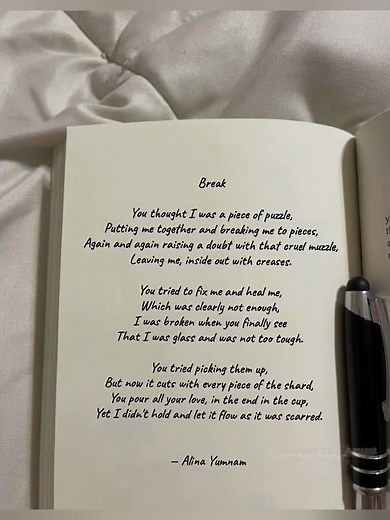 Break
You thought I was a piece of puzzle,
Putting me together and breaking me to pieces,
Again and again raising a doubt with that cruel muzzle,
Leaving me, inside out with creases.
You tried to fix me and heal me,
Which was clearly not enough,
I was broken when you finally see
That I was glass and was not too tough.
You tried picking them up,
But now it cuts with every piece of the shard,
You pour all your love, in the end in the cup,
Yet I didn't hold and let it flow as it was scarred.
– Alina Yumnam